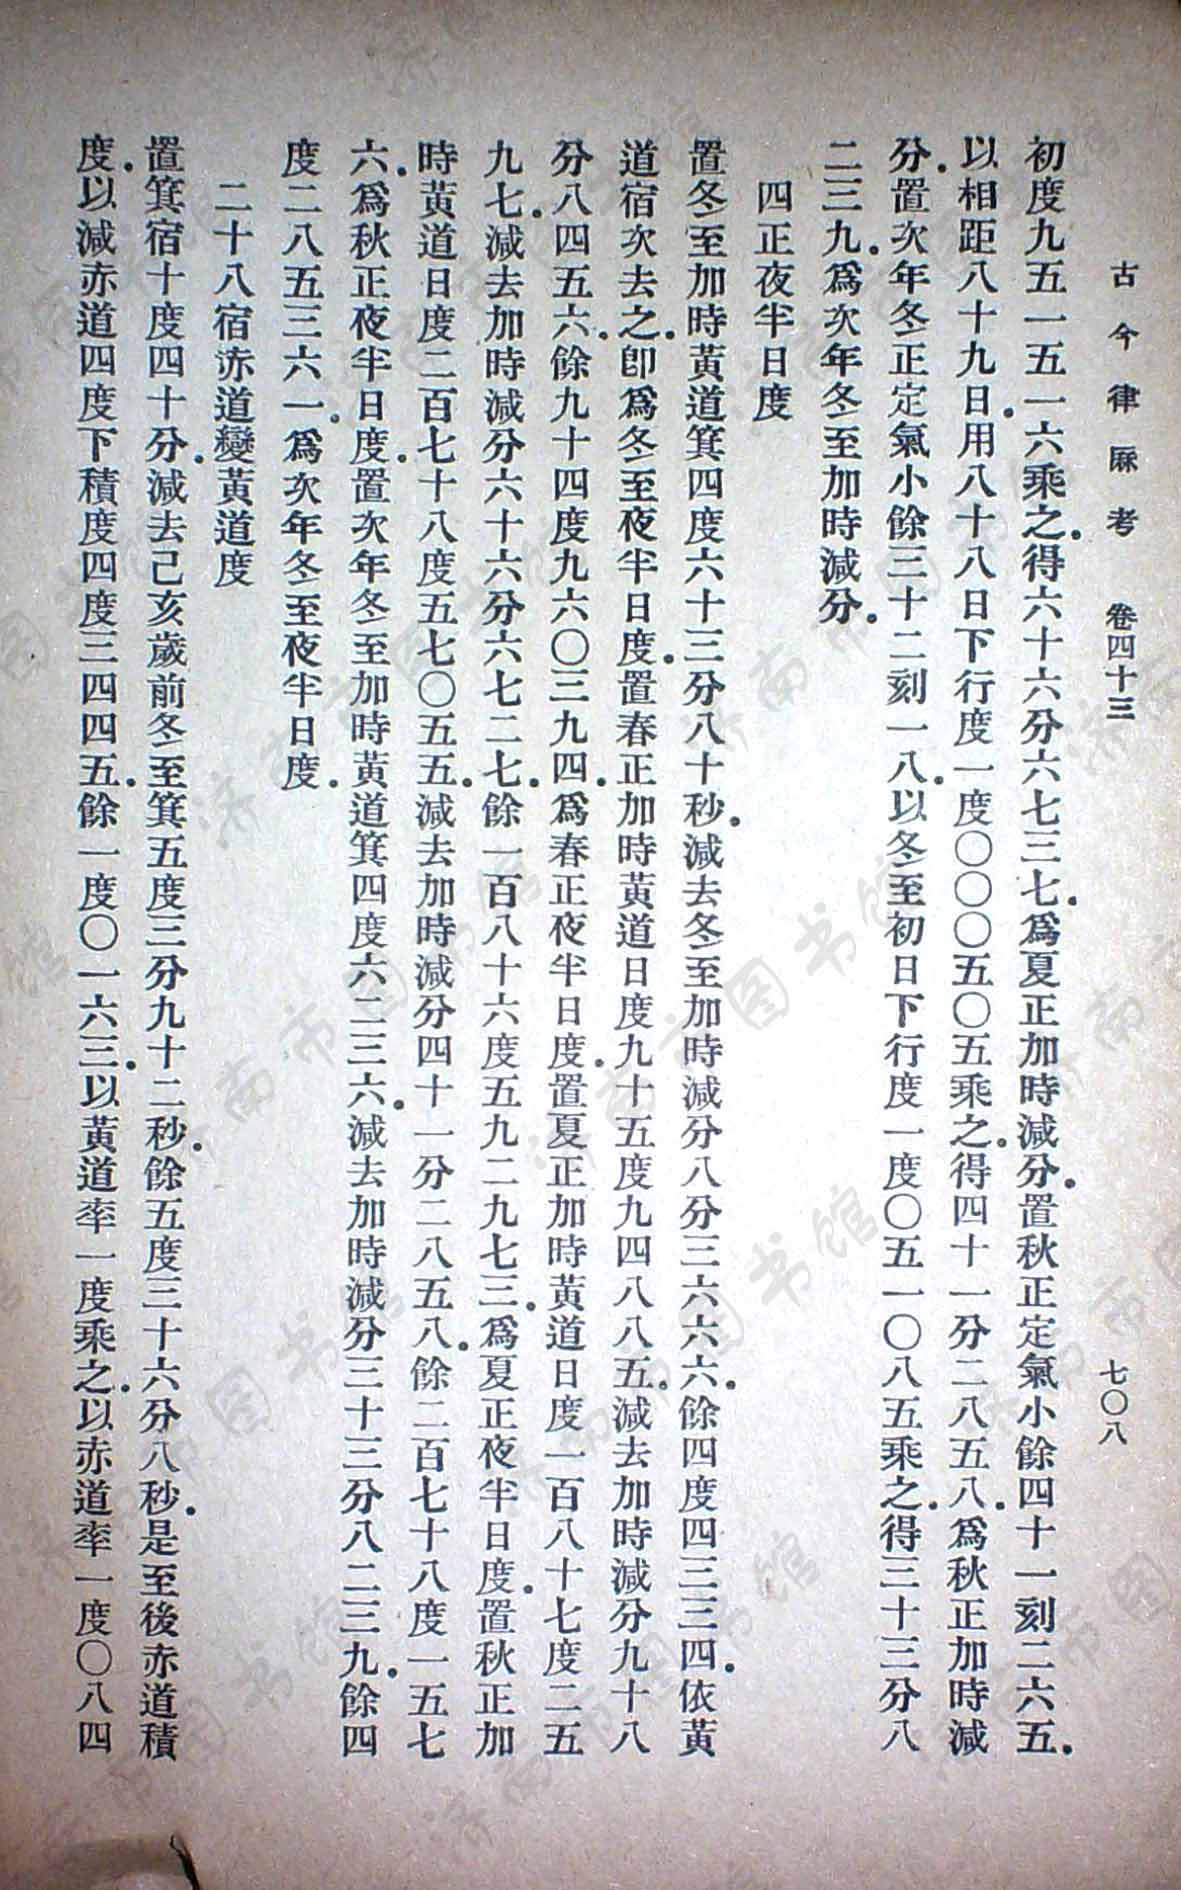 古今律厤考 卷四十三 七〇八
初度九五一五一六乘之得六十六分六七三七爲夏正加時減分置秋正定氣小餘四十一刻二六五
以相距八十九日用八十八日下行度一度〇〇〇五〇五乘之得四十一分二八五八爲秋正加時減
分置次年冬正定氣小餘三十二刻一八以冬至初日下行度一度〇五一〇八五乘之得三十三分八
二三九爲次年冬至加時減分
四正夜半日度
置冬至加時黃道箕四度六十三分八十秒減去冬至加時減分八分三六六六餘四度四三三四依黃
道宿次去之卽爲冬至夜半日度置春正加時黃道日度九十五度九四八八五減去加時減分九十八
分八四五六餘九十四度九六〇三九四爲春正夜半日度置夏正加時黃道日度一百八十七度二五
九七減去加時減分六十六分六七二七餘一百八十六度五九二九七三爲夏正夜半日度置秋正加
時黃道日度二百七十八度五七〇五五減去加時減分四十一分二八五八餘二百七十八度一五七
六爲秋正夜半日度置次年冬至加時黃道箕四度六二三六減去加時減分三十三分八二三九餘四
度二八五三六一爲次年冬至夜半日度
二十八宿赤道變黃道度
置箕宿十度四十分減去己亥歲前冬至箕五度三分九十二秒餘五度三十六分八秒是至後赤道積
度以減赤道四度下積度四度三四四五餘一度〇一六三以黃道率一度乘之以赤道率一度〇八四